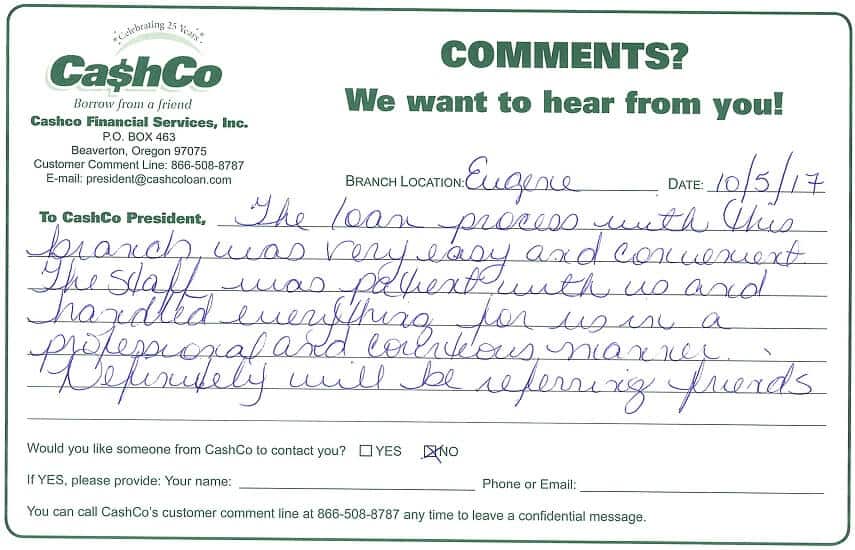 Celebrating 25 Years
Ca$hCo
Borrow from a friend
Cashco Financial Services, Inc.
P.O. BOX 463
Beaverton, Oregon 97075
Customer Comment Line: 866-508-8787
E-mail: president@cashcoloan.com
COMMENTS?
We want to hear from you!
BRANCH LOCATION: Eugene DATE: 10/5/17
To CashCo President, The loan process with this
branch was very easy and convenient.
The staff was patient with us and
handled everything for us in a
professional and courteous manner.
Definitely will be referring friends
Would you like someone from CashCo to contact you? ☐ YES ☒ NO
If YES, please provide: Your name: Phone or Email:
You can call CashCo's customer comment line at 866-508-8787 any time to leave a confidential message.